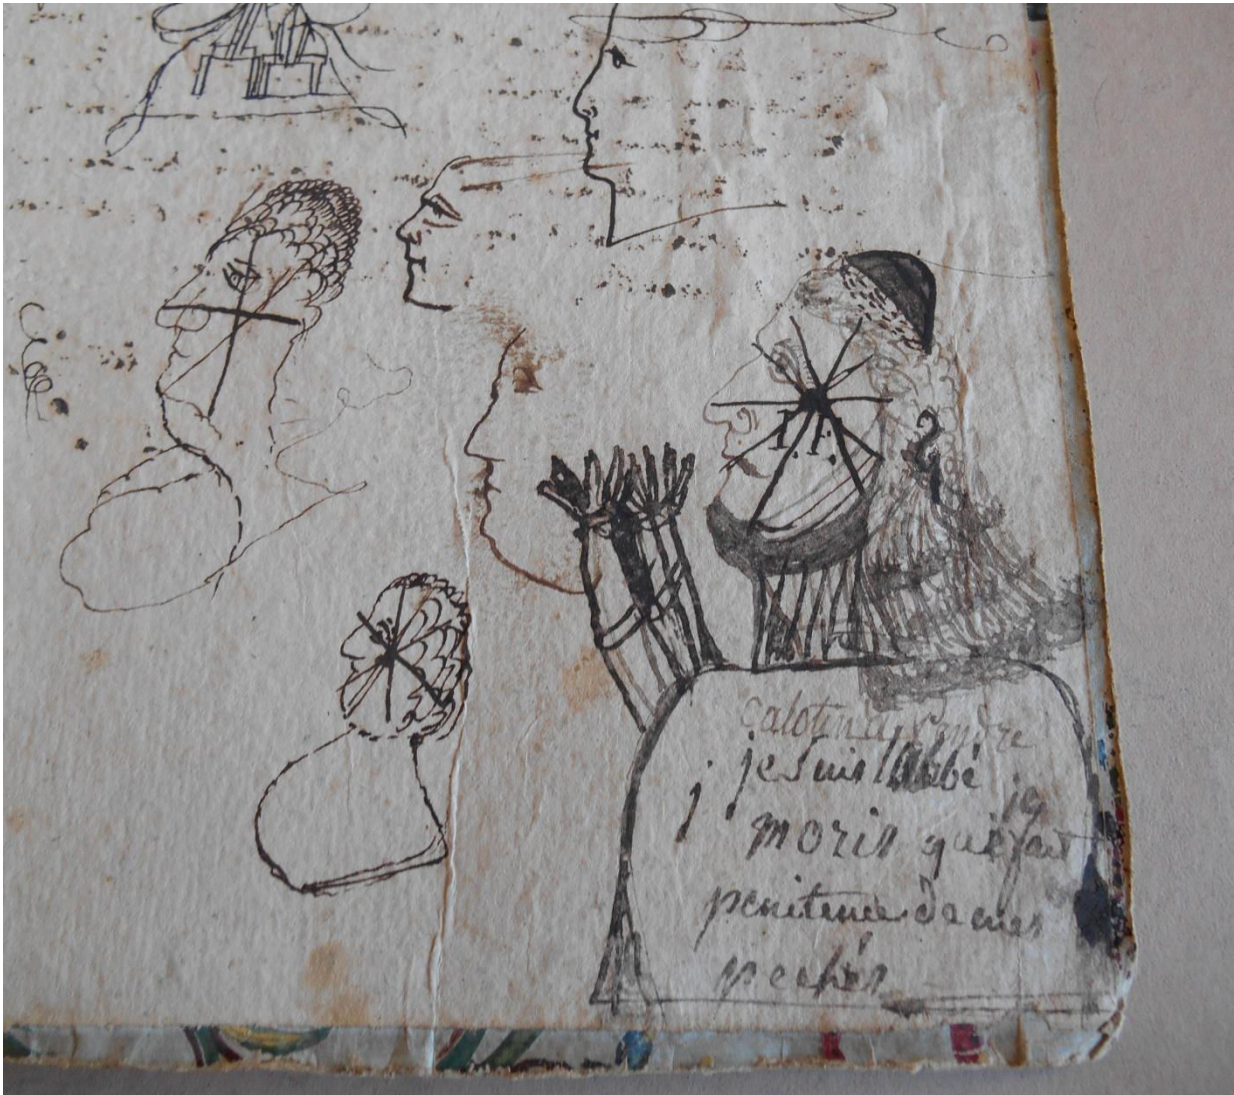 P.F.
calotin a
je suis l'abbé je
morin qui fait
penitence de mes
pechés